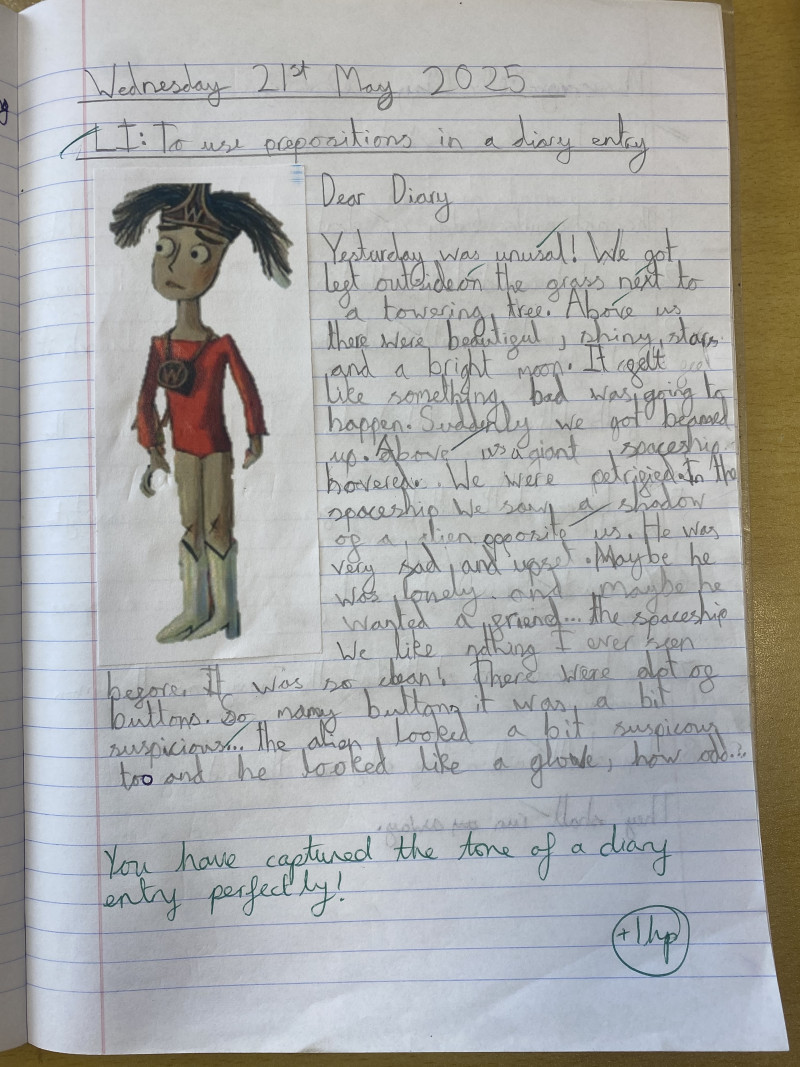 Wednesday 21st May 2025
LI: To use prepositions in a diary entry
W
W
Dear Diary
Yesturday was unusal! We got
left outside on the grass next to
a towering tree. Above us
there were beautiful, shiny, stars
and a bright moon. It felt
like something bad was going to
happen. Suddenly we got beamed
up. Above us a giant spaceship
hovered. We were petrified. In the
spaceship we saw a shadow
of a alien opposite us. He was
very sad and upset. Maybe he
was lonely and maybe he
wanted a friend... the spaceship
We like nothing I ever seen
before. It was so clean! There were alot of
buttons. So many buttons it was a bit
suspicious... the alien looked a bit suspicous
too and he looked like a glove, how odd...
You have captured the tone of a diary
entry perfectly!
+1hp